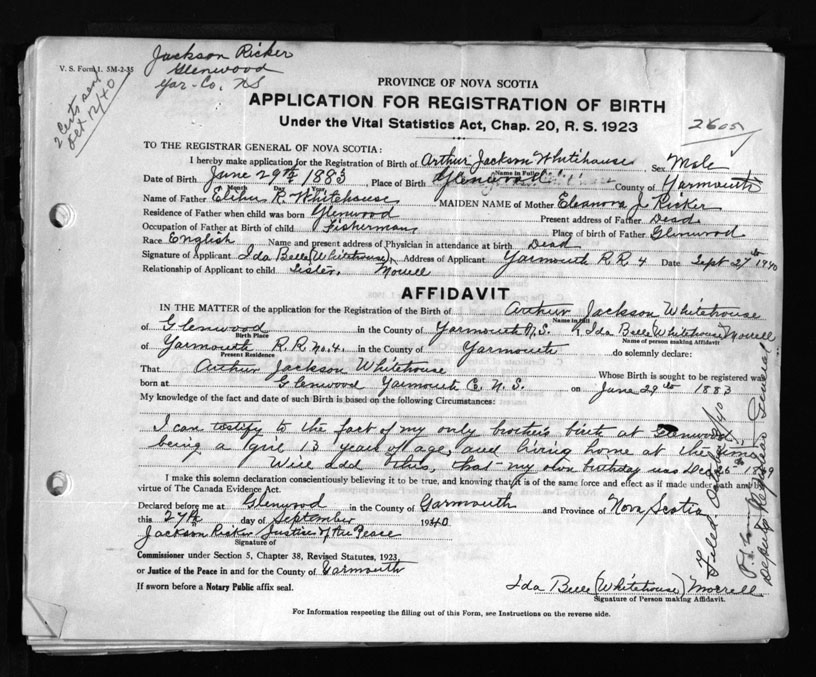 V. S. Form 1. 5M-2-35
Jackson Ricker
Glenwood
Yar. Co. NS
2 Certs sent
Oct 12/40
PROVINCE OF NOVA SCOTIA
APPLICATION FOR REGISTRATION OF BIRTH
Under the Vital Statistics Act, Chap. 20, R. S. 1923
2605
TO THE REGISTRAR GENERAL OF NOVA SCOTIA:
I hereby make application for the Registration of Birth of Arthur Jackson Whitehouse Sex Male
Name in Full
Date of Birth June 29th 1883, Place of Birth Glenwood County of Yarmouth
Month Day Year
Name of Father Elihu R. Whitehouse MAIDEN NAME of Mother Eleanora J. Ricker
Residence of Father when child was born Glenwood Present address of Father Dead
Occupation of Father at Birth of child Fisherman Place of birth of Father Glenwood
Race English Name and present address of Physician in attendance at birth Dead
Signature of Applicant Ida Belle (Whitehouse) Address of Applicant Yarmouth R R 4 Date Sept 27th 1940
Relationship of Applicant to child Sister. Morrell
AFFIDAVIT
IN THE MATTER of the application for the Registration of the Birth of Arthur Jackson Whitehouse
Name in full
of Glenwood in the County of Yarmouth N.S. I, Ida Belle (Whitehouse) Morrell
Birth Place Name of person making Affidavit
of Yarmouth R.R. No. 4. in the County of Yarmouth do solemnly declare:
Present Residence
That Arthur Jackson Whitehouse Whose Birth is sought to be registered was
born at Glenwood Yarmouth C. N. S. on June 29th 1883
My knowledge of the fact and date of such Birth is based on the following Circumstances:
I can testify to the fact of my only brother's birth at Glenwood
being a girl 13 years of age, and living home at the time
Will add this, that my own birthday was Dec 25th 1869
I make this solemn declaration conscientiously believing it to be true, and knowing that it is of the same force and effect as if made under oath and by
virtue of The Canada Evidence Act.
Declared before me at Glenwood in the County of Yarmouth and Province of Nova Scotia
this 27th day of September 1940
Jackson Ricker Justice of the Peace
Signature of
Commissioner under Section 5, Chapter 38, Revised Statutes, 1923,
or Justice of the Peace in and for the County of Yarmouth
If sworn before a Notary Public affix seal.
Ida Belle (Whitehouse) Morrell
Signature of Person making Affidavit.
For Information respecting the filling out of this Form, see Instructions on the reverse side.
Filed October /40
Deputy Registrar General